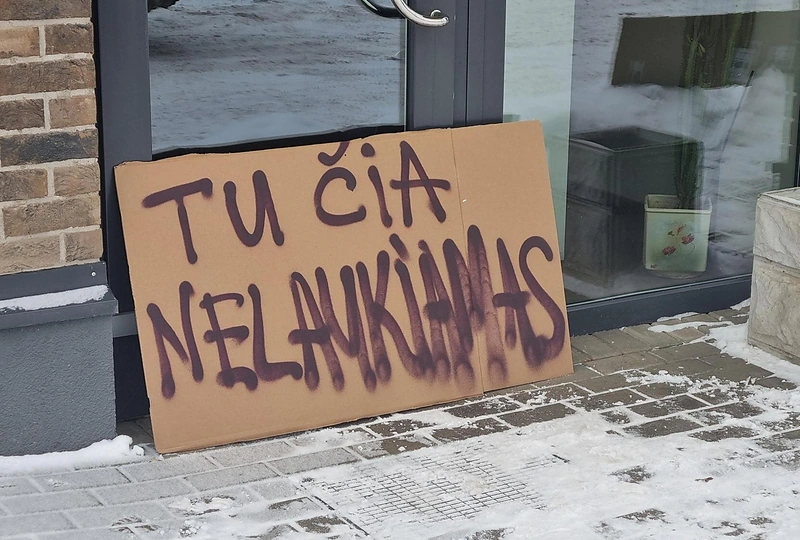 TU ČiA
NELAUKiAMAS